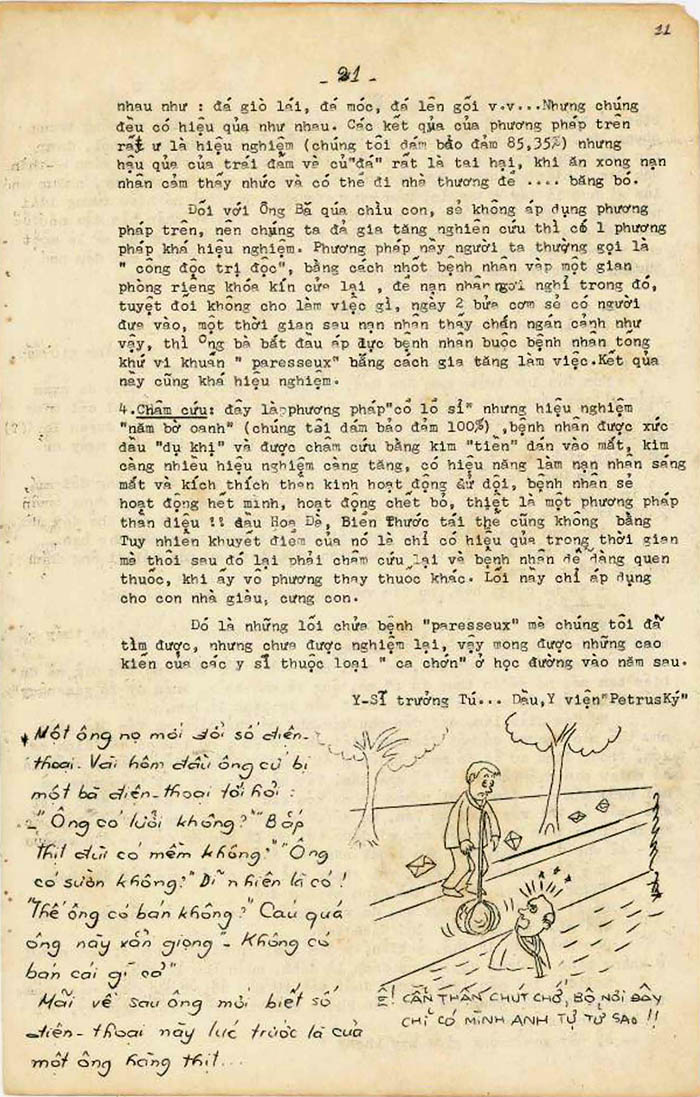 11
- 21 -
nhau như : đá giò lái, đá móc, đá lên gối v.v...Nhưng chúng
đều có hiệu qủa như nhau. Các kết qủa của phương pháp trên
rất ư là hiệu nghiệm (chúng tôi dám bảo đảm 85,35%) nhưng
hậu qủa của trái đấm và củ"đá" rất là tai hại, khi ăn xong nạn
nhân cảm thấy nhức và có thể đi nhà thương để .... băng bó.
Đối với Ông Bã qúa chìu con, sẻ không áp dụng phương
pháp trên, nên chúng ta đả gia tăng nghiên cứu thì có 1 phương
pháp khá hiệu nghiệm. Phương pháp này người ta thường gọi là
" công độc trị độc", bằng cách nhốt bệnh nhân vàp một gian
phòng riêng khóa kín cửa lại , để nạn nhân ngơi nghỉ trong đó,
tuyệt đối không cho làm việc gì, ngày 2 bửa cơm sẻ có người
đưa vào, một thời gian sau nạn nhân thấy chán ngán cảnh như
vậy, thì Ông bà bắt đầu áp lực bệnh nhân buộc bệnh nhân tống
khứ vi khuẩn " paresseux" bằng cách gia tăng làm việc.Kết qủa
này cũng khá hiệu nghiệm.
4.Châm cứu: đây là phương pháp"cổ lổ sỉ" nhưng hiệu nghiệm
"năm bờ oanh" (chúng tôi dám bảo đảm 100%) ,bệnh nhân được xức
dầu "dụ khị" và được châm cứu bằng kim "tiền" dán vào mắt, kim
càng nhiều hiệu nghiệm càng tăng, có hiệu năng làm nạn nhân sáng
mắt và kích thích thần kinh hoạt động dử dội, bệnh nhân sẻ
hoạt động hết mình, hoạt động chết bỏ, thiệt là một phương pháp
thần diệu !! đầu Hoa Dà, Biển Thước tái thế cũng không bằng
Tuy nhiên khuyết điểm của nó là chỉ có hiệu qủa trong thời gian
mà thôi sau đó lại phải châm cứu lại và bệnh nhân dể dàng quen
thuốc, khi ấy vô phương thay thuốc khác. Lối này chỉ áp dụng
cho con nhà giàu, cưng con.
Đó là những lối chửa bệnh "paresseux" mà chúng tôi đã
tìm được, nhưng chưa được nghiệm lại, vậy mong được những cao
kiến của các y sĩ thuộc loại " ca chớn" ở học đường vào năm sau.
Y-Sĩ trưởng Tú... Dầu,Y viện"PetrusKý"
Một ông nọ mới đổi số điện-
thoại. Vài hôm đầu ông cứ bị
một bà điện-thoại tới hỏi :
- "Ông có lưỡi không?" "Bắp
thịt đùi có mềm không?" "Ông
có sườn không?" Dĩ nhiên là có !
"Thế ông có bán không?" Cáu quá
ông này xẳn giọng - Không có
bán cái gì cả"
Mãi về sau ông mới biết số
điện-thoại này lúc trước là của
một ông hàng thịt...
Ê! CẨN THẬN CHÚT CHỚ, BỘ NƠI ĐÂY
CHỈ CÓ MÌNH ANH TỰ TỬ SAO !!